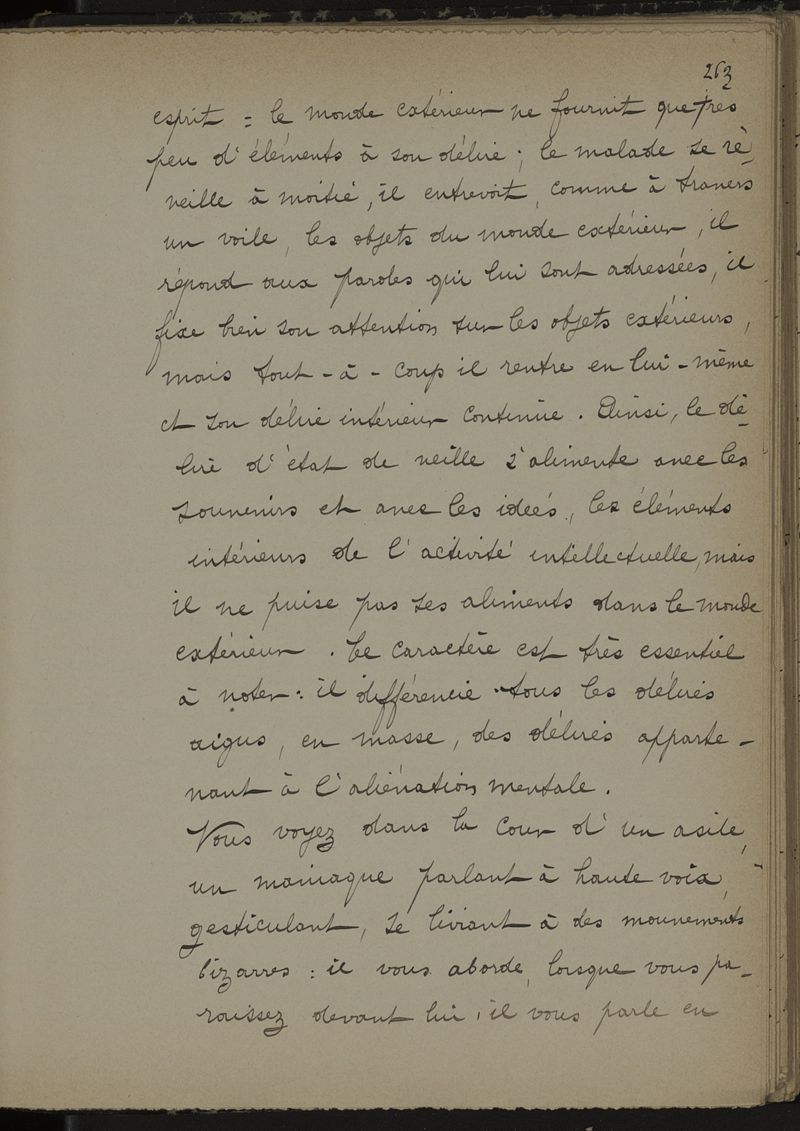 263
esprit = le monde extérieur ne fournit que très
peu d'éléments à son délire ; le malade se ré-
veille à moitié, il entrevoit, comme à travers
un voile, les objets du monde extérieur, il
répond aux paroles qui lui sont adressées, il
fixe bien son attention sur les objets extérieurs,
mais tout-à-coup il rentre en lui-même
et son délire intérieur continue. Ainsi, le dé-
lire d'état de veille s'alimente avec les
souvenirs et avec les idées, les éléments
intérieurs de l'activité intellectuelle, mais
il ne puise pas ses aliments dans le monde
extérieur. Ce caractère est très essentiel
à noter : il différencie tous les délires
aigus, en masse, des délires apparte-
nant à l'aliénation mentale.
Vous voyez dans la cour d'un asile,
un maniaque parlant à haute voix,
gesticulant, se livrant à des mouvements
bizarres : il vous aborde, lorsque vous pa-
raissez devant lui, il vous parle en